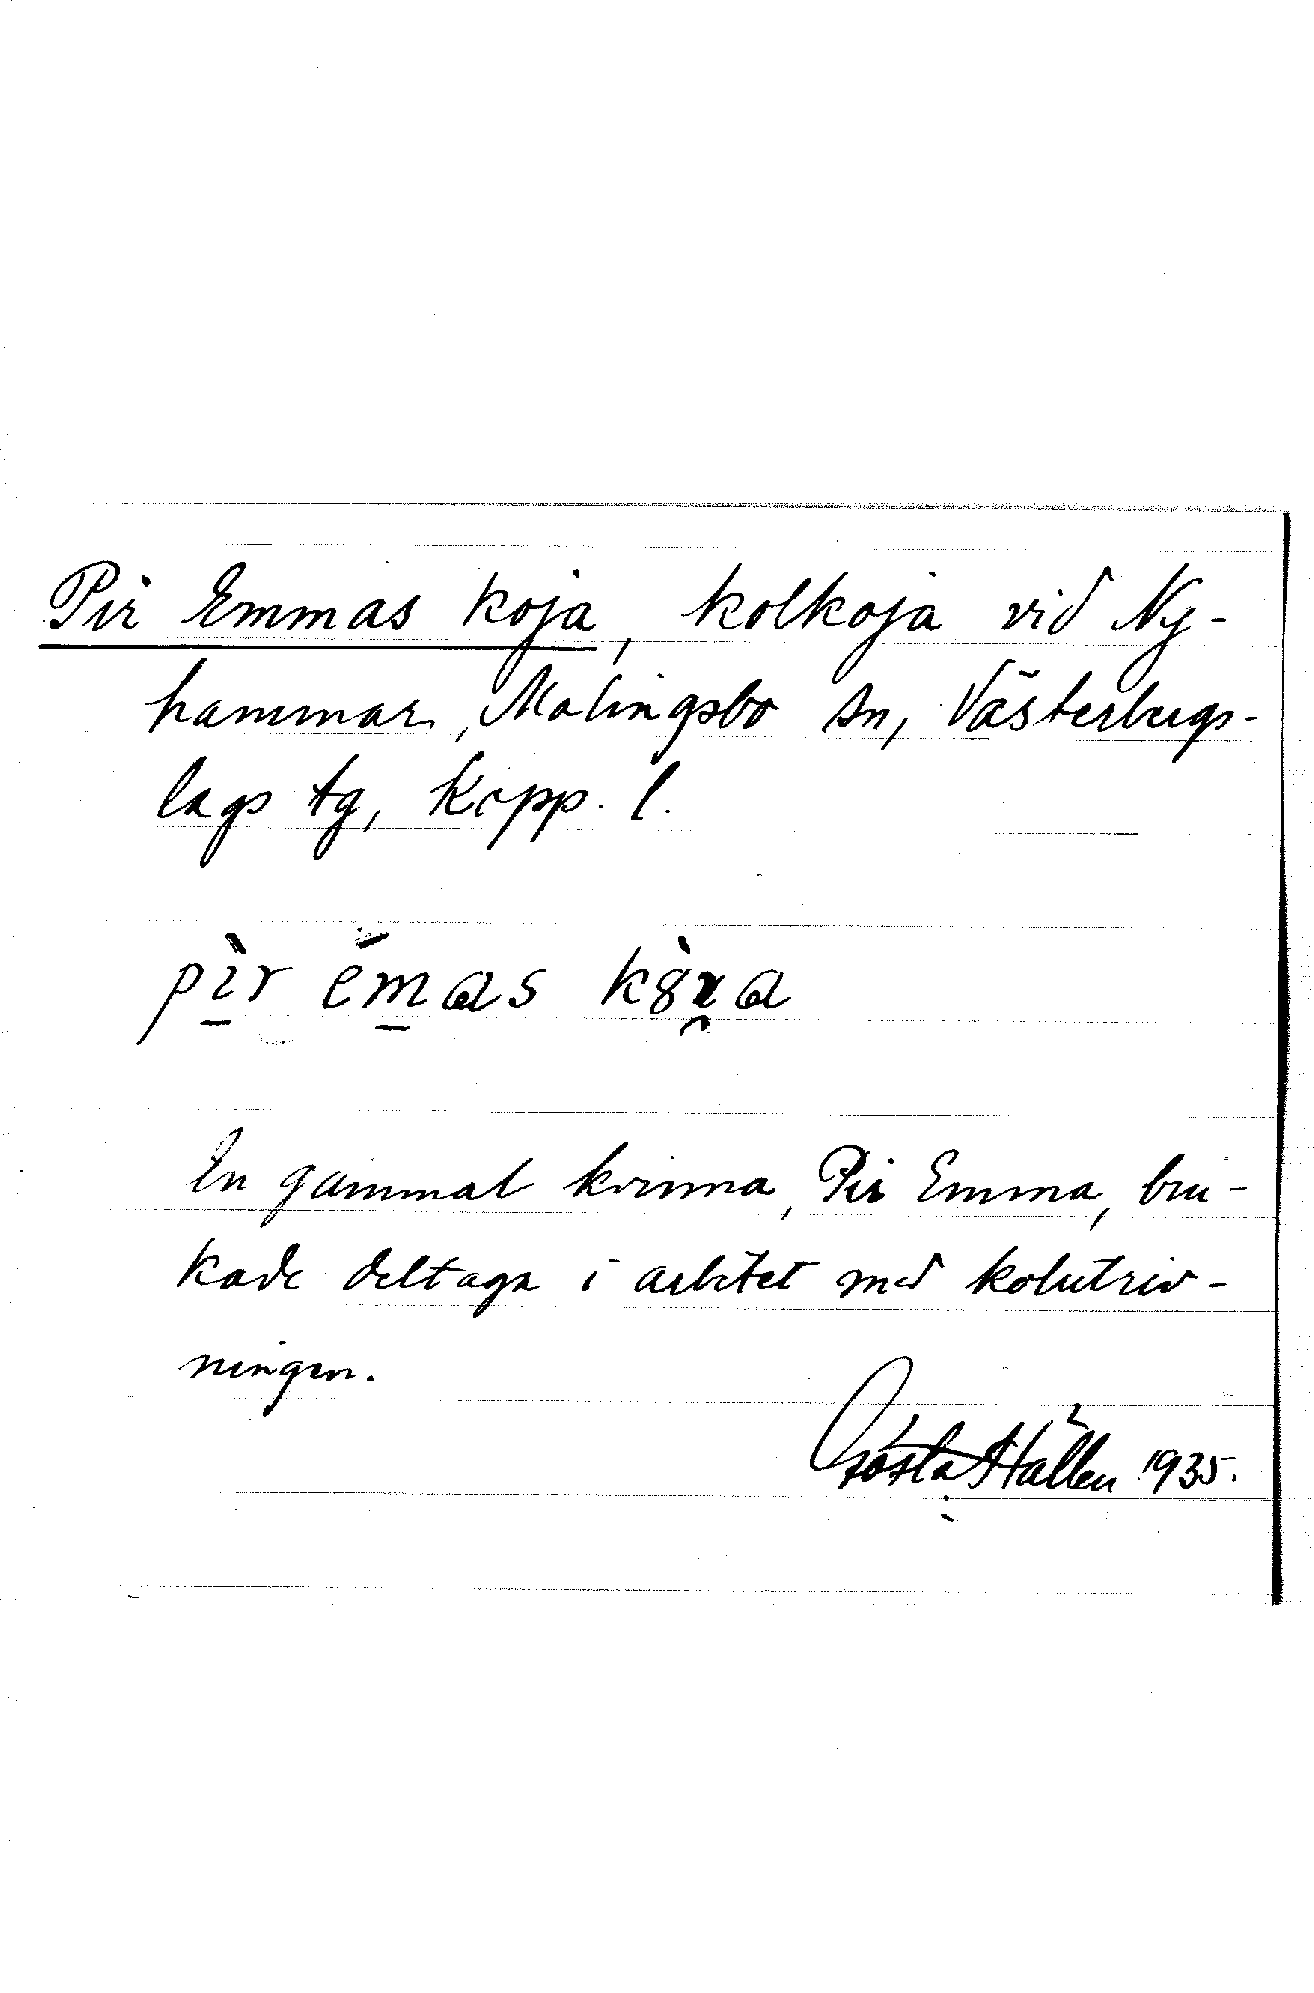 Pir Emmas koja, kolkoja vid Ny-
hammar, Malingsbo sn, Västerbergs-
lags tg, Kopp. l.
pìr émas kòɤa
En gammal kvinna, Pir Emma, bru-
kade deltaga i arbetet med kolutriv-
ningen.
Gösta Hállen 1935.